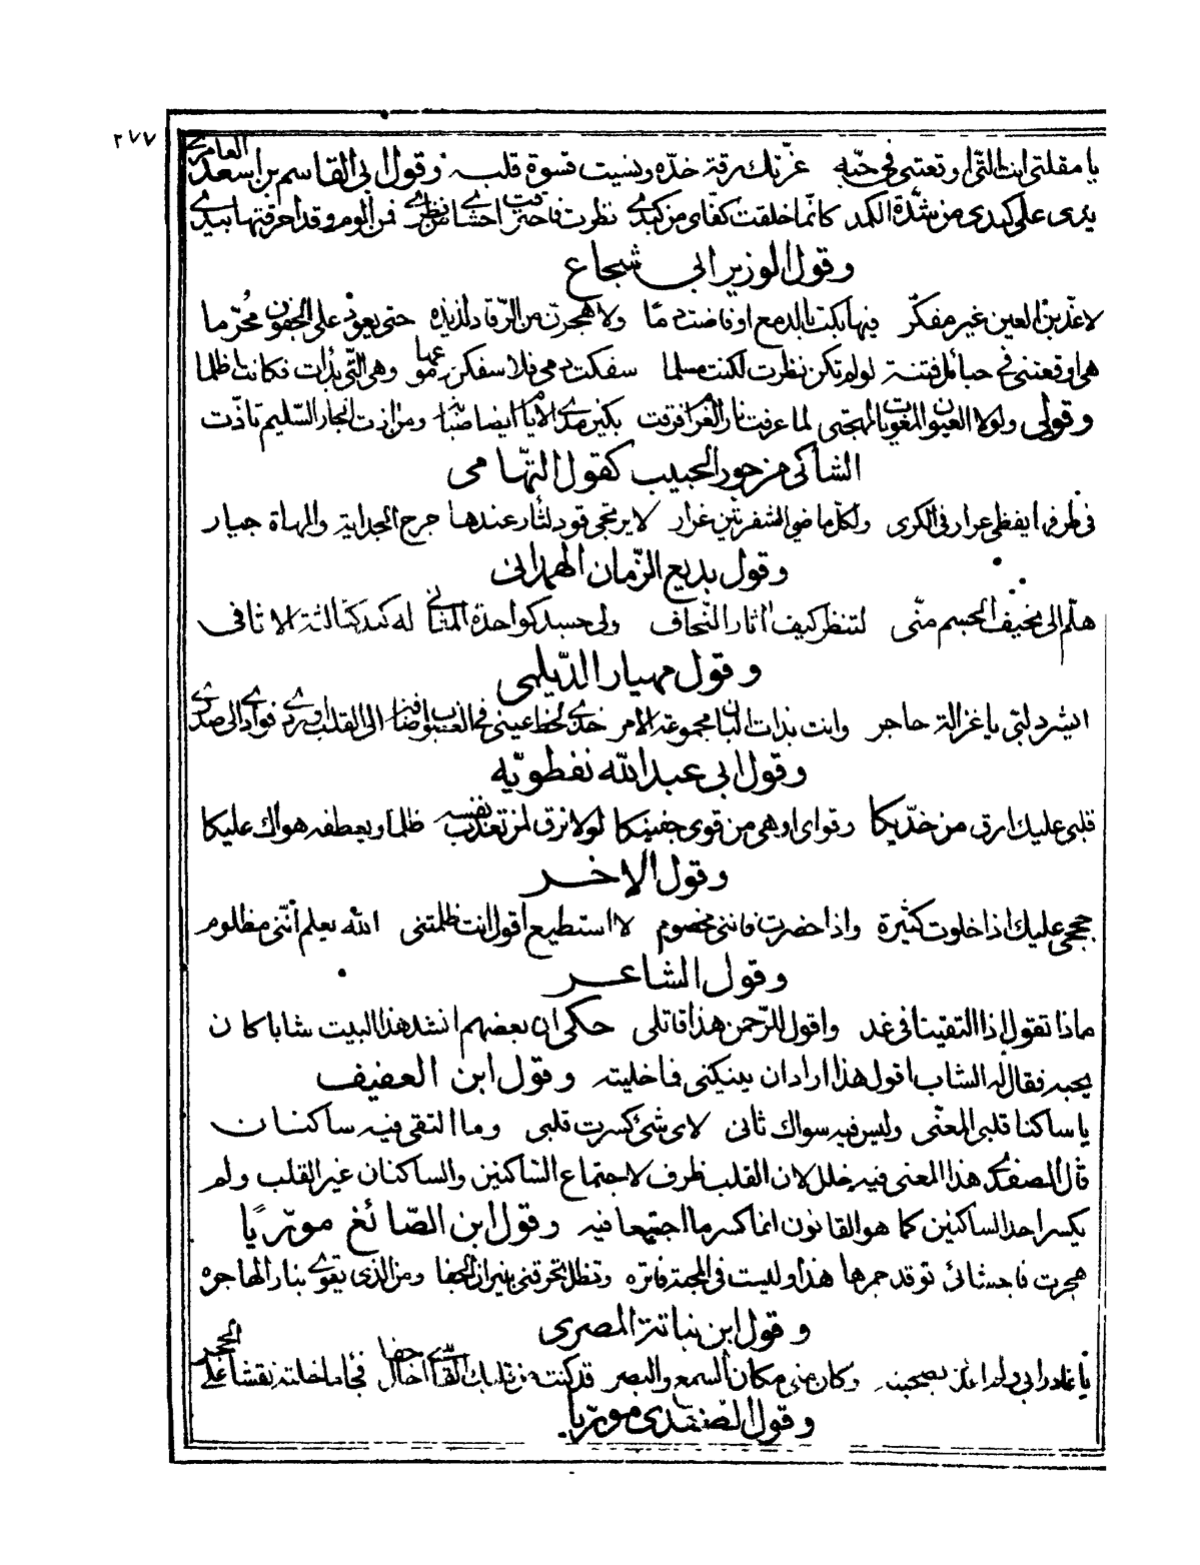 ٢٧٧
يا مقلتي انت التي اوقعتني في حبه غرّتك رقة خدّه ونسيت قسوة قلبه وقول ابي القاسم بن اسعد العامري
يدي على كبدي من شدّة الكمد كانّما خلقت كفّاي من كبدي نظرت فاحترقت احشاي من نظري فمن الوم وقد احرقتها بيدي
وقول الوزير ابي شجاع
لاعذّبن العين غير مفكّر فيها بكت بالدمع او فاضت دما ولاهجرن من الرّقاد لذيذه حتى يعود على الجفون محرّما
هي اوقعتني في حبائل فتنة لو لم تكن نظرت لكنت مسلما سفكت دمي فلاسفكن دموعها وهي التي بدات فكانت اظلما
وقولي ولولا العيون المغويات لمهجتي لما عرفت نار الغرام
الشاكي من جور الحبيب كقول التهامي
في طرفها ايفظي غرار في الكرى ولكل ماضي الشفرتين غرار لا يرتجى قود لثار عندها جرح الجداية والمهاة جبار
وقول بديع الزّمان الهمداني
هلّم الى نحيف الجسم منّي لتنظر كيف اثار النّحاف ولي جسد كواحدة المثاني له كبد كثالثة الاثافي
وقول مهيار الدّيلمي
انشر دلتي يا غزالة حاجر وانت بذات البان مجموعة الامر خذي لحظ عيني في الغصوب اضافة الى القلب او ردي فؤادي الى صدري
وقول ابي عبد الله نفطويّه
قلبي عليك ارق من خدّيكا وقواي اوهى من قوى جفنيكا لم لا ترق لمن تعذب نفسه ظلما ويعطفه هواك عليكا
وقول الاخر
حججي عليك اذا خلوت كثيرة واذا حضرت فانني مخصوم لا استطيع اقول انت ظلمتني الله يعلم انّني مظلوم
وقول الشاعر
ماذا تقول اذا التقينا في غد واقول للرّحمن هذا قاتلي حكي ان بعضهم انشد هذا البيت شابا كان
يحبه فقال له الشاب اقول هذا اراد ان ينيكني فما خليته وقول ابن العفيف
يا ساكنا قلبي المعنّى وليس فيه سواك ثاني لاي شيء كسرت قلبي وما التقى فيه ساكنان
قال الصفدي هذا المعنى فيه خلل لان القلب ظرف لاجتماع الساكنين والساكنان غير القلب ولم
يكسر احد الساكنين كما هو القانون انما كسر ما اجتمعا فيه وقول ابن الصّائغ مورّيًا
هجرت فاحشائي توقد جمرها هذا وليست في المحبة فاتره وتظل تحرقني بنيران الجفا ومن الذي يقوى بنار الهاجره
وقول ابن نباتة المصري
وكان مني مكان السمع والبصر قد كنت من قلبك القاسي اخال جفا فجاء ما خلته نقشا على الحجر
وقول الصّفدي مورّيا